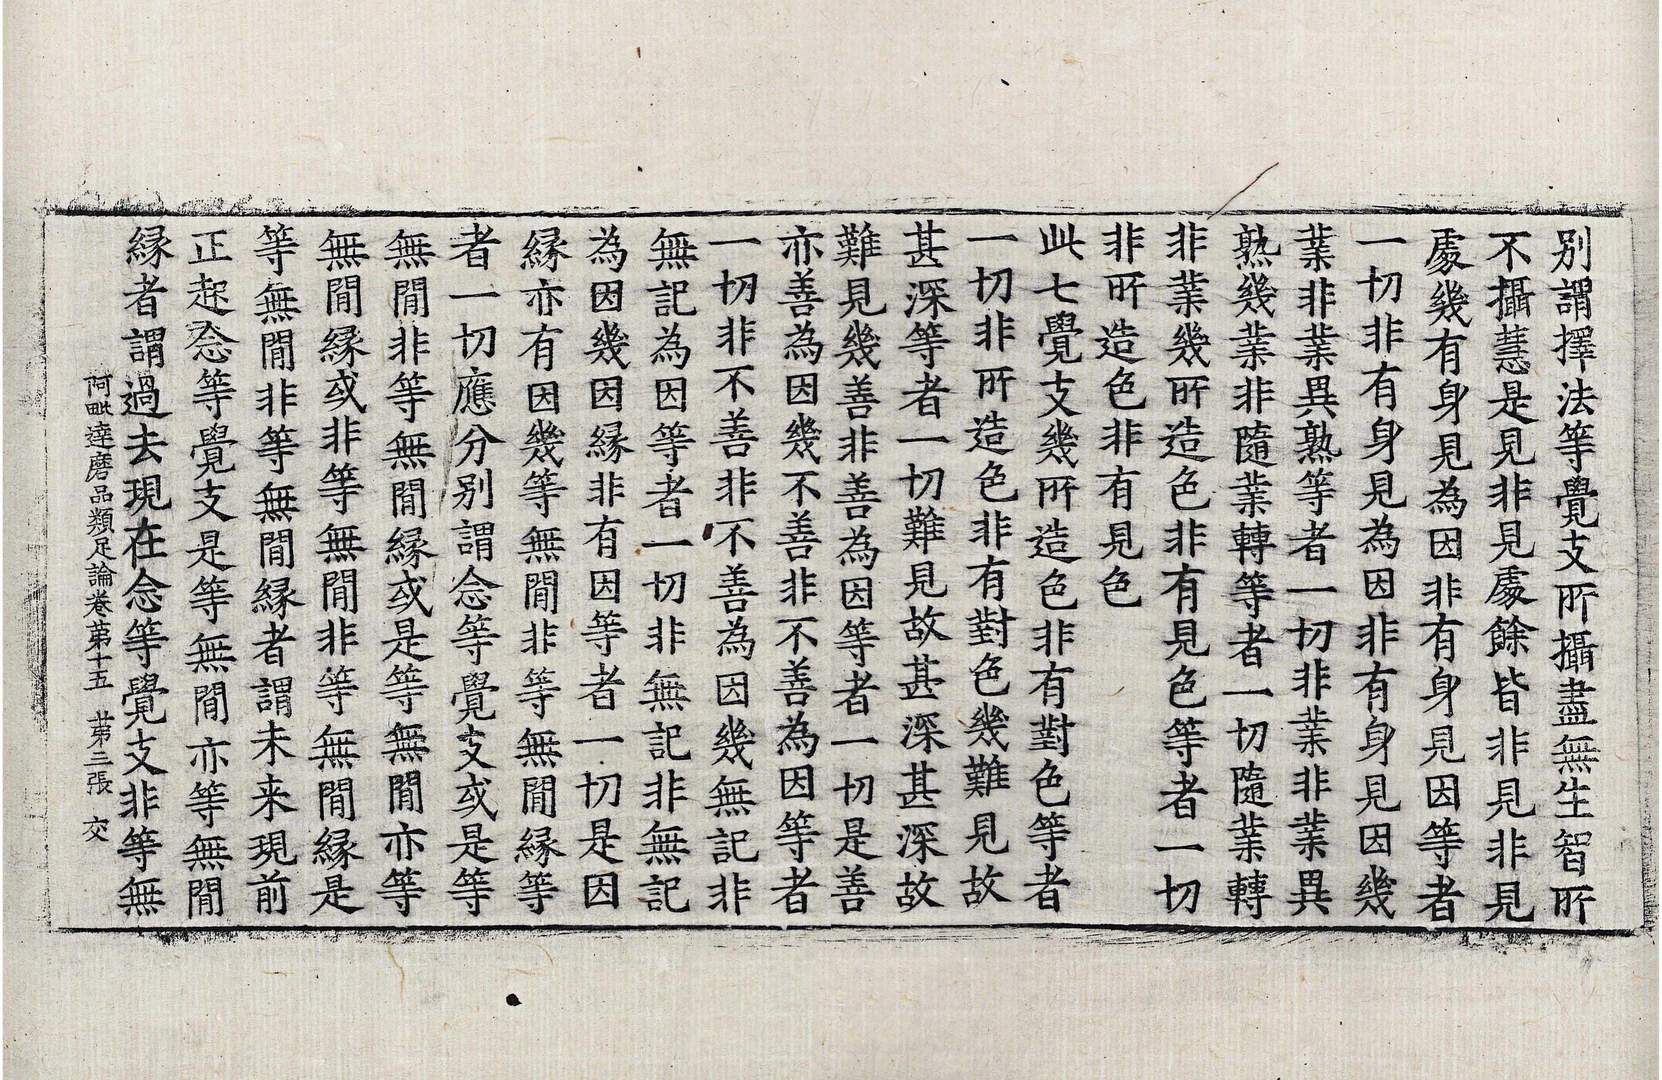 別謂擇法等覺支所攝盡無生智所
不攝慧是見非見處餘皆非見非見
處幾有身見為因非有身見因等者
一切非有身見為因非有身見因幾
業非業異熟等者一切非業非業異
熟幾業非隨業轉等者一切隨業轉
非業幾所造色非有見色等者一切
非所造色非有見色
此七覺支幾所造色非有對色等者
一切非所造色非有對色幾難見故
甚深等者一切難見故甚深甚深故
難見幾善非善為因等者一切是善
亦善為因幾不善非不善為因等者
一切非不善非不善為因幾無記非
無記為因等者一切非無記非無記
為因幾因緣非有因等者一切是因
緣亦有因幾等無閒非等無閒緣等
者一切應分別謂念等覺支或是等
無閒非等無閒緣或是等無閒亦等
無閒緣或非等無閒非等無閒緣是
等無閒非等無閒緣者謂未來現前
正起念等覺支是等無閒亦等無閒
緣者謂過去現在念等覺支非等無
阿毗達磨品類足論卷苐十五 苐三張 交